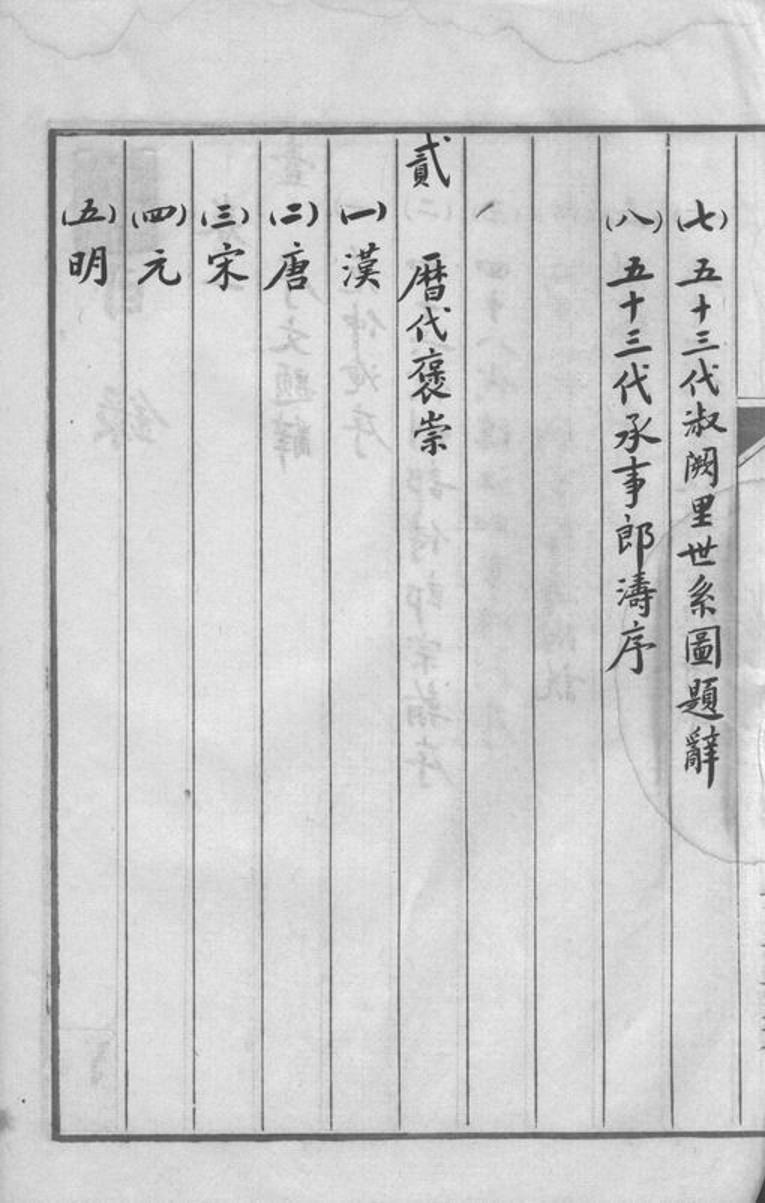 (七) 五十三代淑闕里世系圖題辭
(八) 五十三代承事郎濤序
貳 曆代褒崇
(一) 漢
(二) 唐
(三) 宋
(四) 元
(五) 明